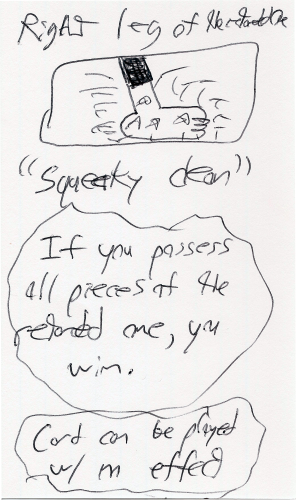 Right leg of the retarded one
"Squeeky clean"
If you possess
all pieces of the
retarded one, you
win.
Card can be played
w/ no effect